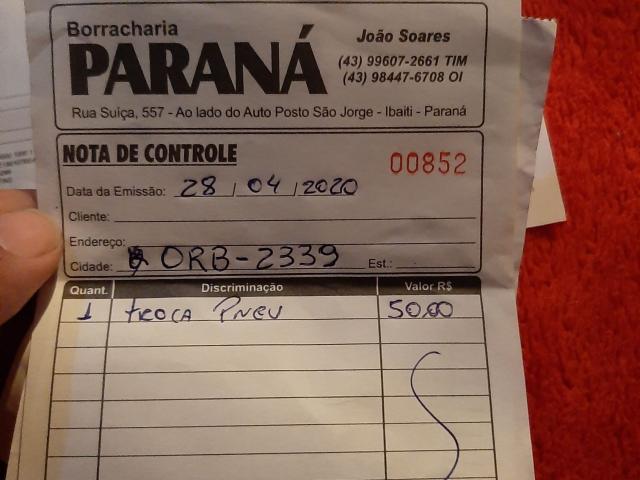 Borracharia
PARANÁ
João Soares
(43) 99607-2661 TIM
(43) 98447-6708 OI
Rua Suíça, 557 - Ao lado do Auto Posto São Jorge - Ibaiti - Paraná
NOTA DE CONTROLE
00852
Data da Emissão: 28 / 04 / 2020
Cliente:
Endereço:
Cidade: ORB-2339 Est.:
Quant. Discriminação Valor R$
1 troca Pneu 50,00